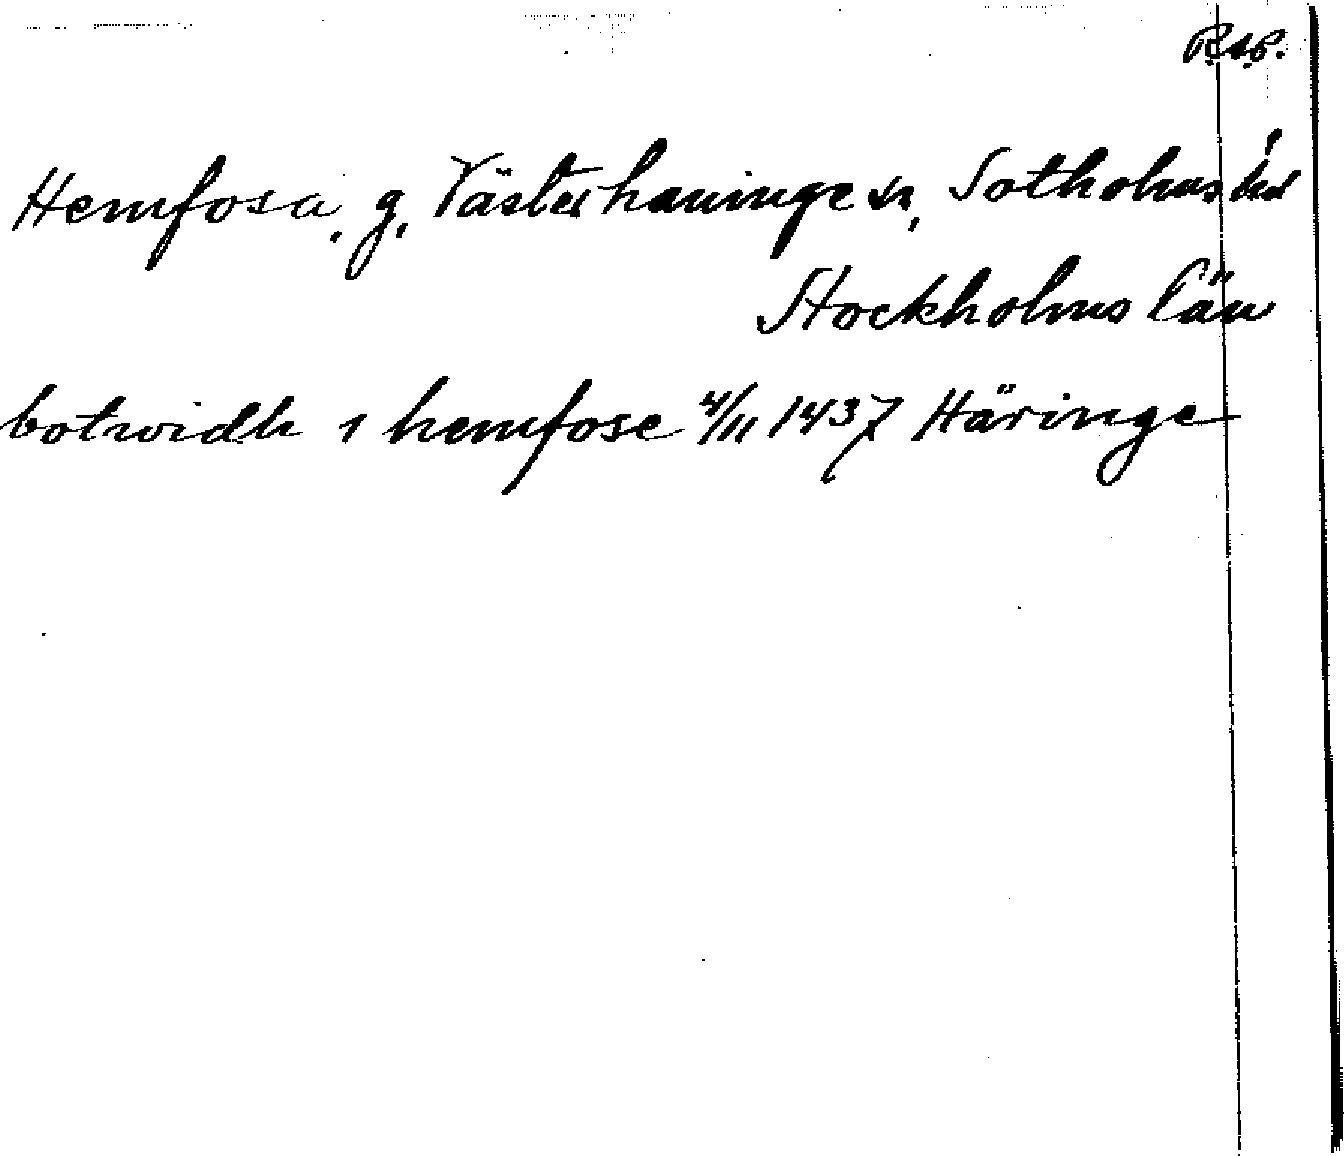 R.A.P.
Hemfosa, g, Västerhaninge sn, Sotholms hd
Stockholms län
botwidh i hemfose 4/11 1437 Häringe